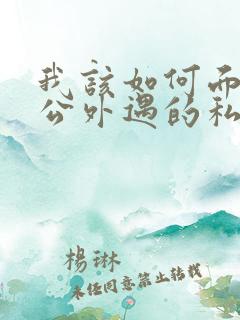 我該如何而
公外遇的私
楊琳
未经同意禁止转载